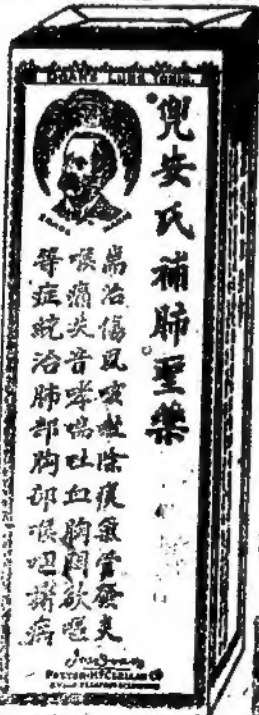 DOAN'S LUNG TONIC
兜安氏補肺聖藥
耑治傷風咳嗽除痰氣管發炎
喉痛失音哮喘吐血胸悶欲嘔
等症統治肺部胸部喉咀諸病
FOSTER-McCLELLAN Co